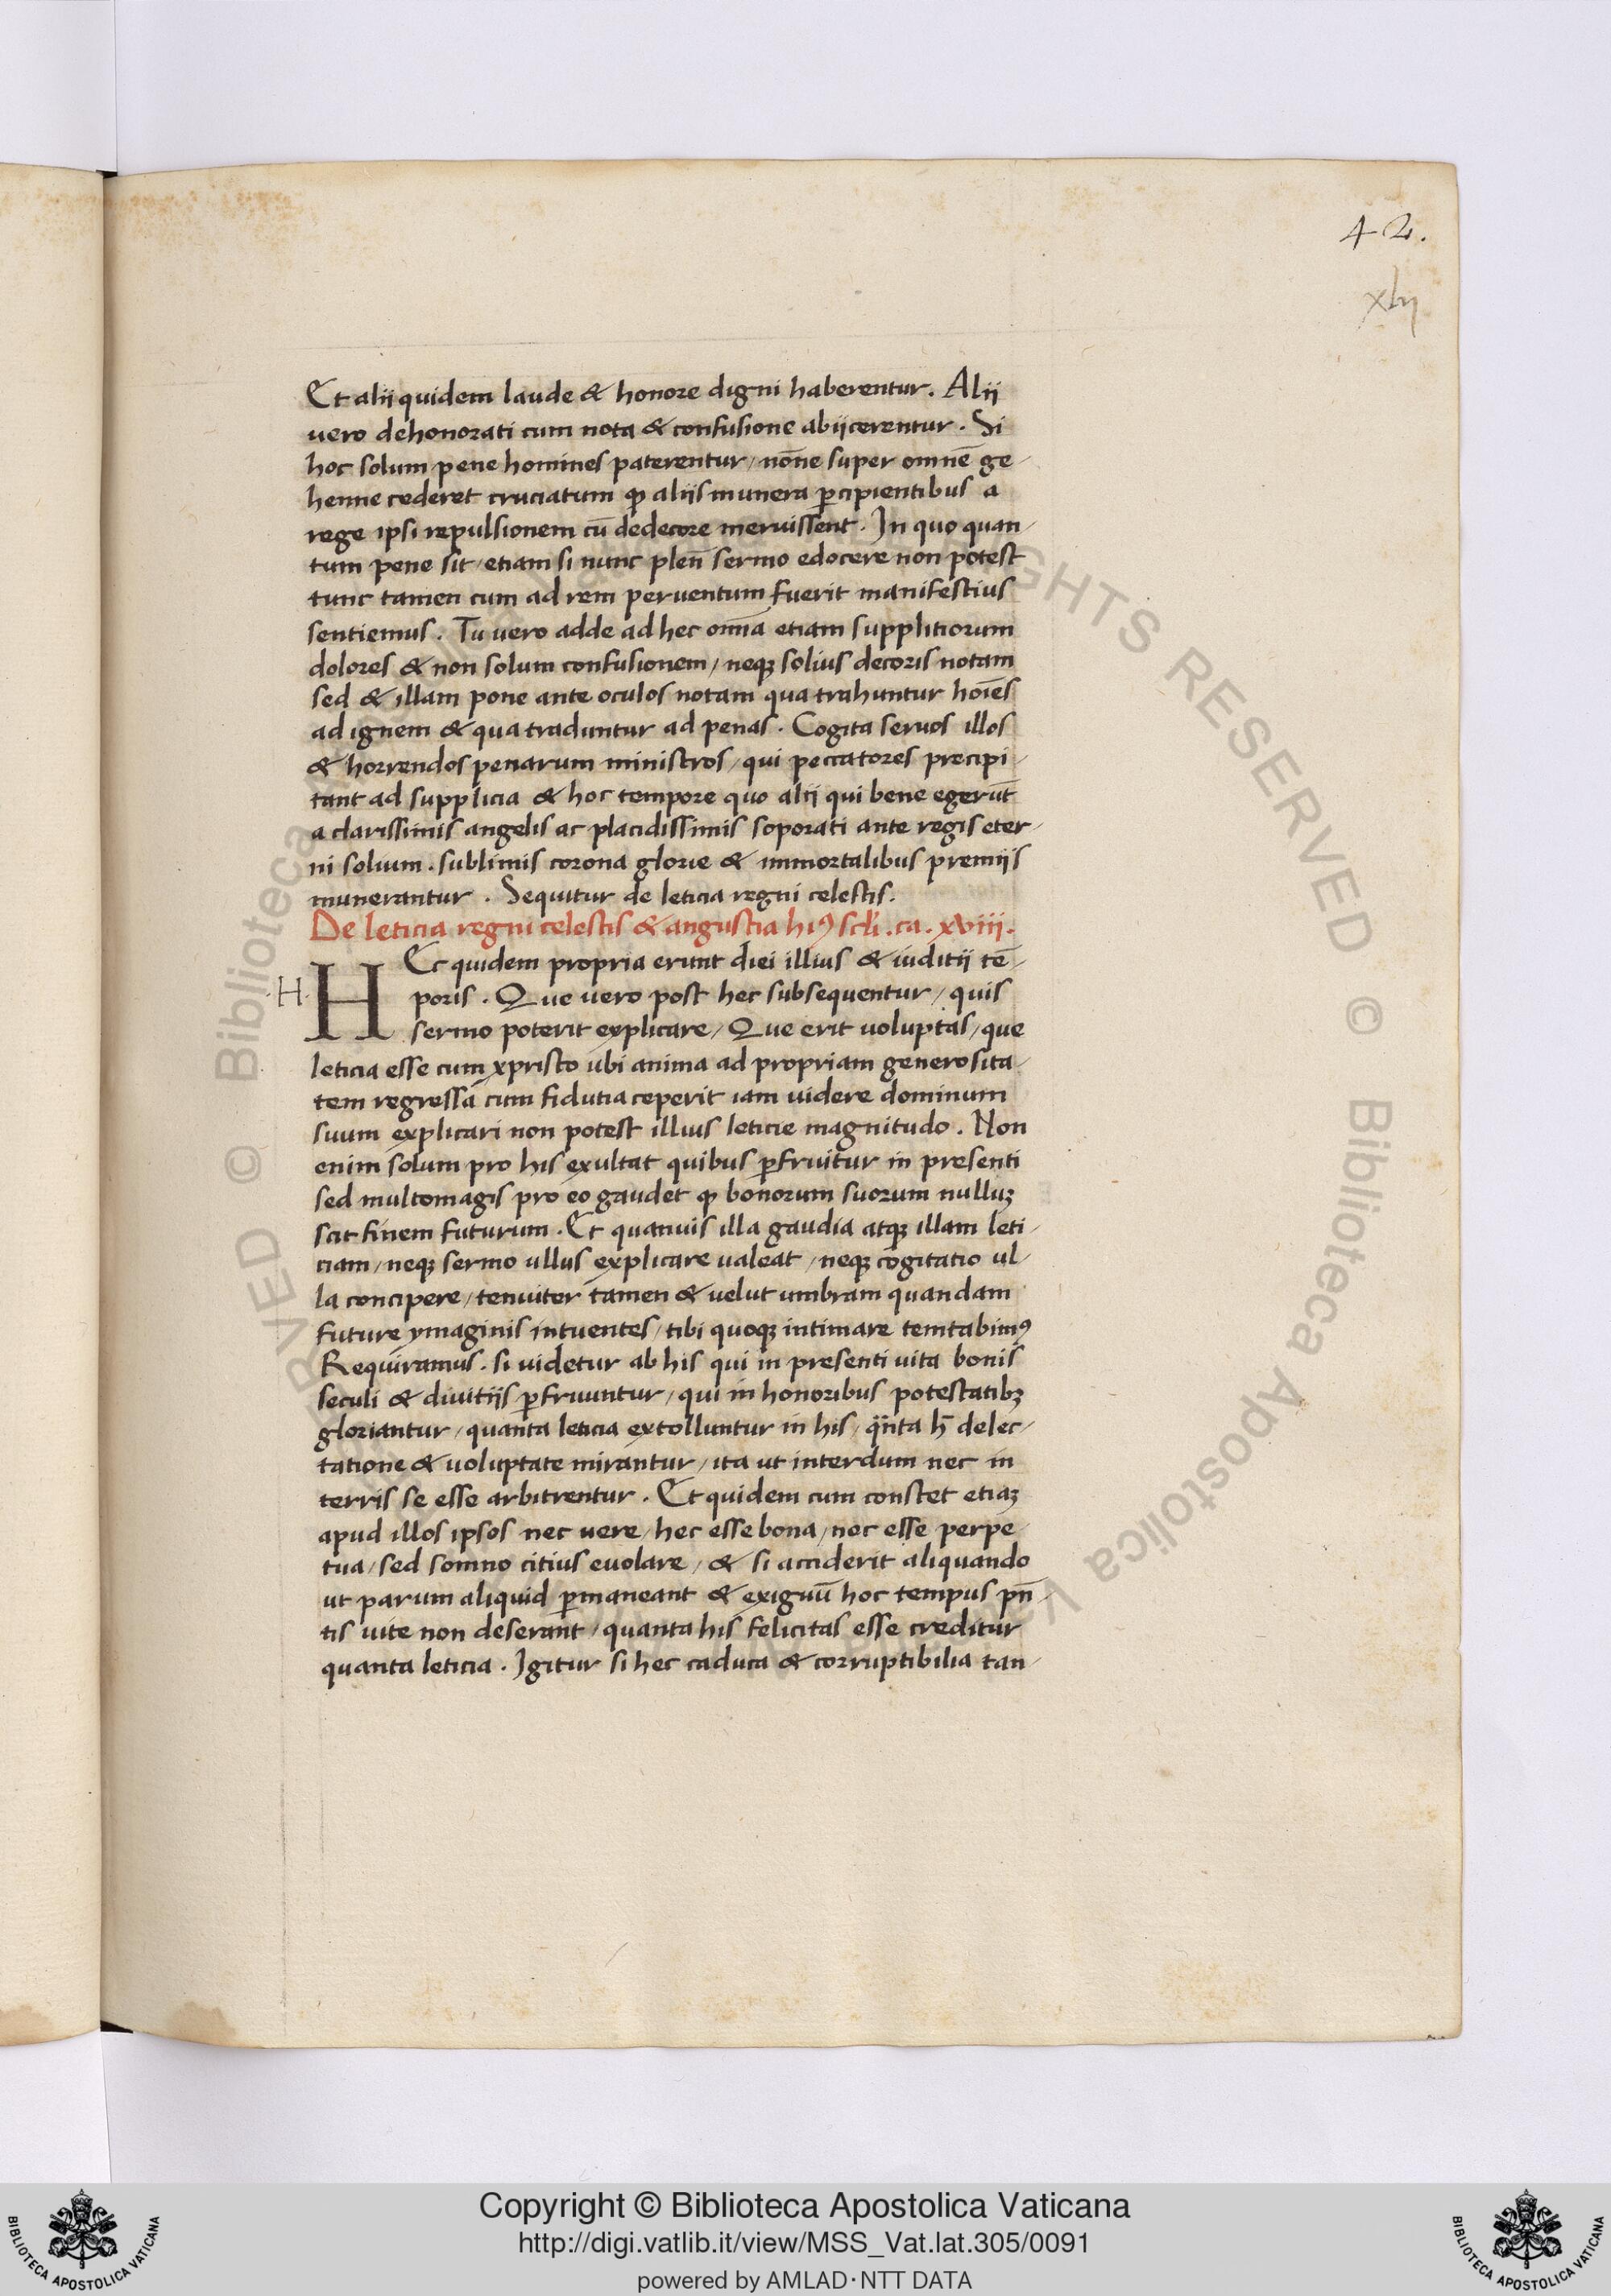 42.
xlij
Et alii quidem laude & honore digni haberentur. Alii
vero dehonorati cum nota & confusione abiicerentur. Si
hoc solum pene homines paterentur / nōne super omnē ge-
henne cederet cruciatum ꝙ aliis munera ꝑcipientibus a
rege ipsi repulsionem cū dedecore meruissent. In quo quan-
tum pene sit / etiam si nunc plen̄ sermo edocere non potest
tunc tamen cum ad rem peruentum fuerit manifestius
sentiemus. Tu vero adde ad hec om̄ia etiam supplitiorum
dolores & non solum confusionem / neqꝫ solius decoris notam
sed & illam pone ante oculos notam qua trahuntur hoīes
ad ignem & qua traduntur ad penas. Cogita seruos illos
& horrendos penarum ministros / qui peccatores precipi-
tant ad supplicia & hoc tempore quo alii qui bene egerūt
a clarissimis angelis ac placidissimis soporati ante regis eter-
ni solium. sublimis corona glorie & immortalibus premiis
munerantur. Sequitur de leticia regni celestis.
De leticia regni celestis & angustia hiꝰ scl̄i. ca. xviii.
.H. HEc quidem propria erunt diei illius & iuditii tē-
poris. Que vero post hec subsequentur / quis
sermo poterit explicare / Que erit uoluptas / que
leticia esse cum xpristo ubi anima ad propriam generosita-
tem regressa cum fidutia ceperit iam uidere dominum
suum explicari non potest illius leticie magnitudo. Non
enim solum pro his exultat quibus ꝑfruitur in presenti
sed multomagis pro eo gaudet ꝙ bonorum suorum nulluꝫ
scit finem futurum. Et quamuis illa gaudia atqꝫ illam leti-
ciam / neqꝫ sermo ullus explicare ualeat / neqꝫ cogitatio ul-
la concipere / tenuiter tamen & velut umbram quandam
future ymaginis intuentes / tibi quoqꝫ intimare temtabimꝰ
Requiramus. si uidetur ab his qui in presenti uita bonis
seculi & diuitiis ꝑfruuntur / qui in honoribus potestatibꝫ
gloriantur / quanta leticia extolluntur in his / qn̄ta h̄ delec-
tatione & uoluptate mirantur / ita ut interdum nec in
terris se esse arbitrentur. Et quidem cum constet etiaꝫ
apud illos ipsos nec uere / hec esse bona / nec esse perpe-
tua / sed somno citius euolare / & si acciderit aliquando
ut parum aliquid ꝑmaneant & exiguū hoc tempus pn̄-
tis uite non deserant / quanta his felicitas esse creditur
quanta leticia. Igitur si hec caduca & corruptibilia tan-
Copyright © Biblioteca Apostolica Vaticana
http://digi.vatlib.it/view/MSS_Vat.lat.305/0091
powered by AMLAD·NTT DATA
BIBLIOTECA APOSTOLICA VATICANA
BIBLIOTECA APOSTOLICA VATICANA